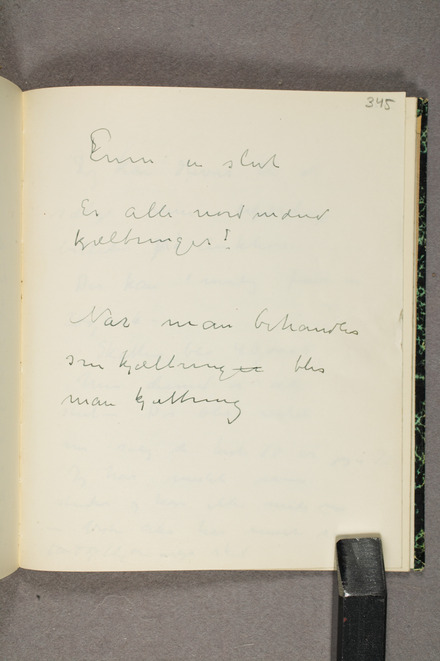 345
Enn en slut
Er alle nordmænd
kjæltringer!
Når man behandles
som kjæltring blir
man kjæltring